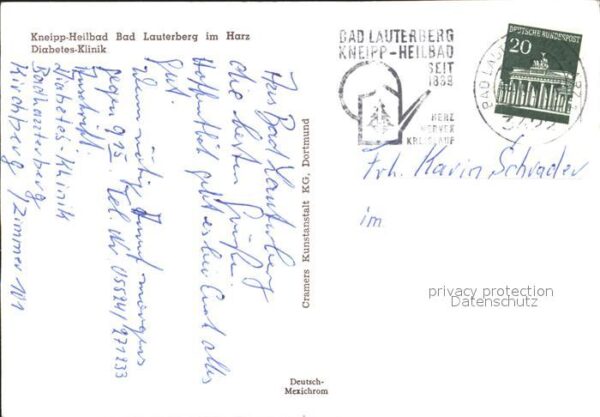 Kneipp-Heilbad Bad Lauterberg im Harz
Diabetes-Klinik
BAD LAUTERBERG
KNEIPP-HEILBAD
SEIT
HERZ
NERVEN
KREISLAUF
DEUTSCHE BUNDESPOST
20
BAD LAUTERBERG
Aus Bad Lauterberg
die besten Grüße.
Hoffentlich geht es bei Euch alles
gut.
Wenn nötig, Anruf morgens
gegen 9 15. Tel. Nr. 05524/
Anschrift:
Diabetes-Klinik
Bad Lauterberg
Kirchberg / Zimmer 101
Cramers Kunstanstalt KG, Dortmund
Frl. Karin Schrader
im
privacy protection
Datenschutz
Deutsch-
Mexichrom